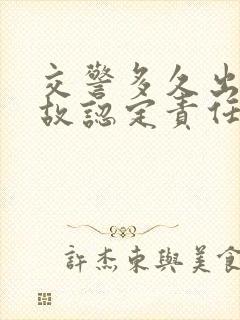 交警多久出
故認定責任
許杰東與美食